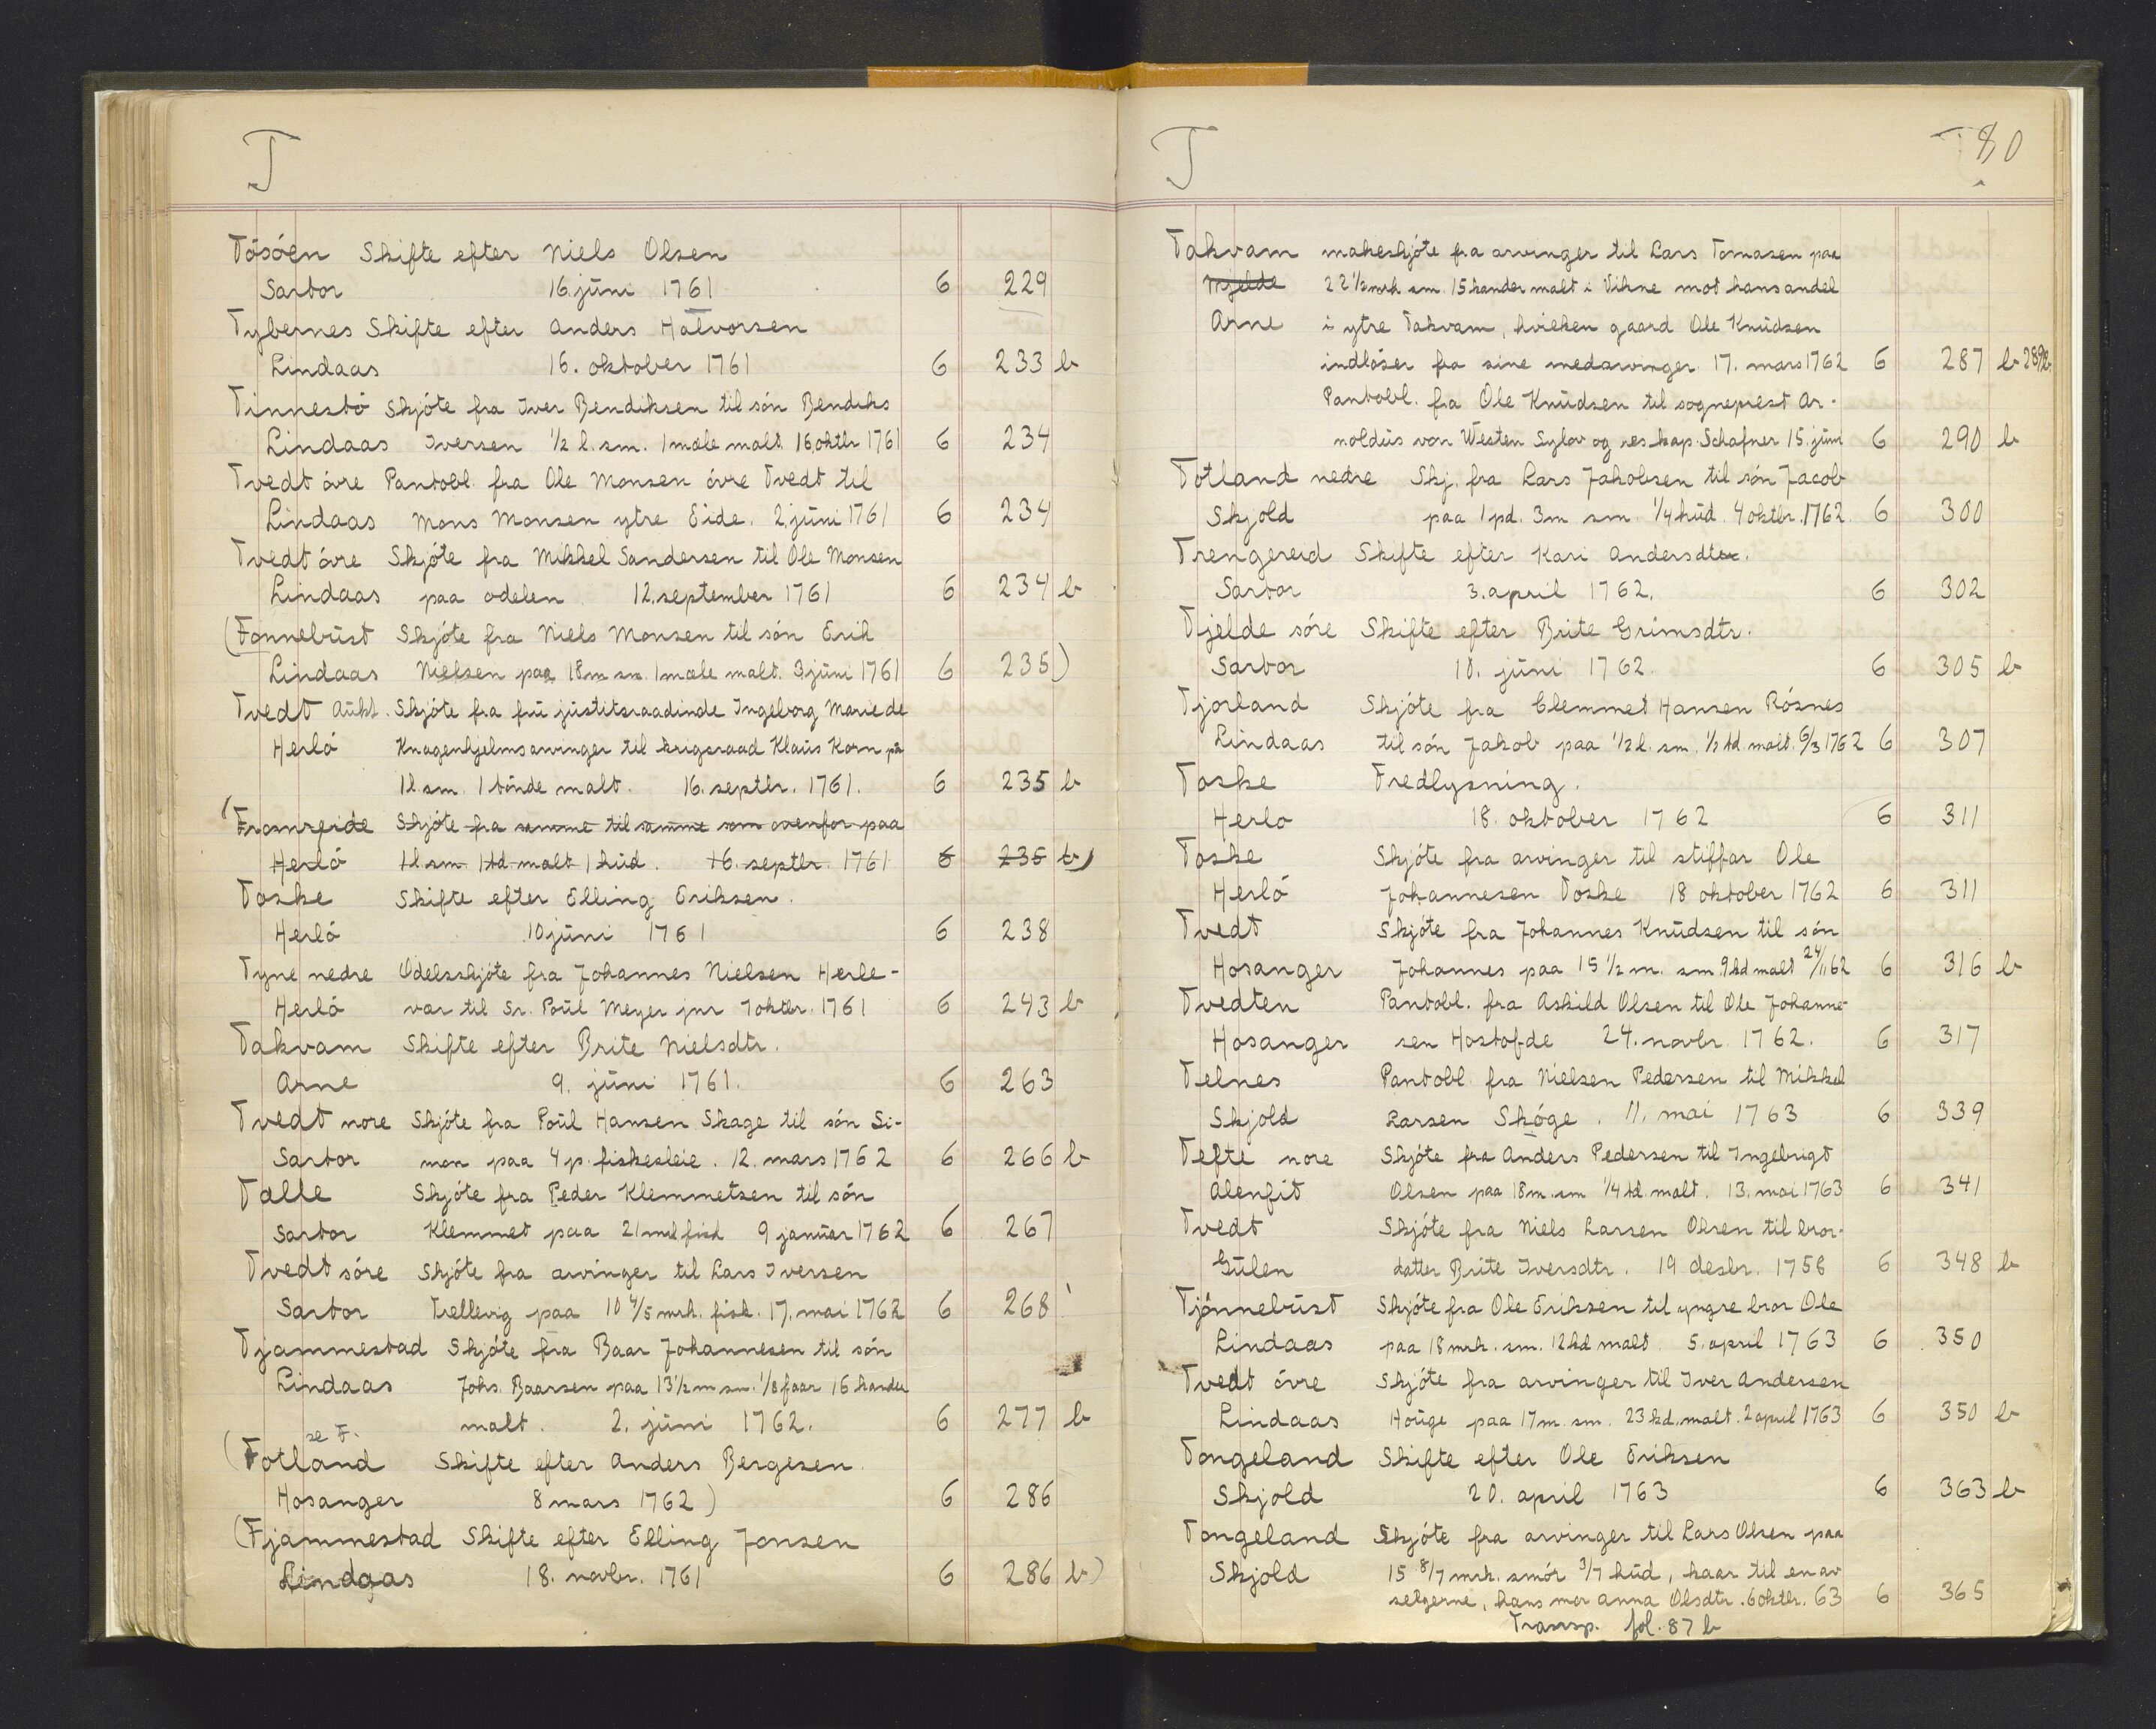 T
Tösöen Skifte efter Niels Olsen
Sartor 16. jüni 1761 6 229
Tybernes Skifte efter Anders Halvorsen
Lindaas 16. oktober 1761 6 233 b
Tinnestö Skjóte fra Iver Bendiksen til són Bendiks
Lindaas Iversen 1/2 l. sm. 1 mæle malt 16 oktbr 1761 6 234
Tvedt óvre Pantobl. fra Ole Monsen óvre Tvedt til
Lindaas Mons Monsen ytre Eide. 2. jüni 1761 6 234
Tvedt óvre Skjóte fra Mikkel Sandersen til Ole Monsen
Lindaas paa odelen 12. september 1761 6 234 b
(Fonnebüst Skjóte fra Niels Monsen til són Erik
Lindaas Nielsen paa 18 m sm. 1 mæle malt. 3 jüni 1761 6 235)
Tvedt Aükt. Skjóte fra frü jüstitsraadinde Ingeborg Marie de
Herló Knagenhjelms arvinger til krigsraad Klaüs Korn på
1 l. sm. 1 tónde malt. 16. septbr. 1761. 6 235 b
(Fromreide Skjóte fra samme til samme som ovenfor paa
Herló 1 l. sm 1 td malt 1 hüd. 16. septbr. 1761 6 235 b)
Toske Skifte efter Elling Eriksen.
Herló 10 jüni 1761 6 238
Tyne nedre Odelsskjóte fra Johannes Nielsen Herle-
Herló var til Sr. Poül Meyer jnr 7 oktbr. 1761 6 243 b
Takvam Skifte efter Brite Nielsdtr.
Arne 9. jüni 1761. 6 263
Tvedt nore Skjóte fra Poül Hansen Skage til són Si-
Sartor mon paa 4 p. fiskesleie. 12. mars 1762 6 266 b
Talle Skjóte fra Peder Klemmetsen til són
Sartor Klemmet paa 21 mrk fisk 9 janüar 1762 6 267
Tvedt sóre Skjóte fra arvinger til Lars Iversen
Sartor Trellevig paa 10 4/5 mrk. fisk. 17. mai 1762 6 268
Tjammestad Skjóte fra Baar Johannesen til són
Lindaas Johs. Baarsen paa 13 1/2 m sm. 1/8 faar 16 kander
malt. 2. jüni 1762. 6 277 b
se F.
(Fotland Skifte efter Anders Bergesen.
Hosanger 8 mars 1762) 6 286
(Fjammestad Skifte efter Elling Jonsen
Lindaas 18. novbr. 1761 6 286 b)
T 80
Takvam makeskjóte fra arvinger til Lars Tomasen paa
Mjelde 22 1/2 mrk sm. 15 kander malt i Vikne mot hans andel
Arne i ytre Takvam, hvilken gaard Ole Knüdsen
indlóser fra sine medarvinger 17. mars 1762 6 287 b 289b
Pantobl. fra Ole Knüdsen til sogneprest Ar-
noldüs von Westen Sylov og res. kap. Schafner 15. jüni 6 290 b
Totland nedre Skj. fra Lars Jakobsen til són Jacob
Skjold paa 1 pd. 3 m sm. 1/4 hüd. 4 oktbr. 1762. 6 300
Trengereid Skifte efter Kari Andersdtr.
Sartor 3. april 1762. 6 302
Tjelde sóre Skifte efter Brite Grimsdtr.
Sartor 10. jüni 1762. 6 305 b
Tjorland Skjóte fra Clemmet Hansen Rósnes
Lindaas til són Jakob paa 1/2 l. sm. 1/2 td malt. 6/3 1762 6 307
Toske Fredlysning.
Herlo 18. oktober 1762 6 311
Toske Skjóte fra arvinger til stiffar Ole
Herló Johannesen Toske 18 oktober 1762 6 311
Tvedt Skjóte fra Johannes Knüdsen til són
Hosanger Johannes paa 15 1/2 m. sm 9 kd malt 24/11 62 6 316 b
Tvedten Pantobl. fra Askild Olsen til Ole Johanne-
Hosanger sen Hostofde 24. novbr. 1762. 6 317
Telnes Pantobl. fra Nielsen Pedersen til Mikkel
Skjold Larsen Skóge. 11. mai 1763 6 339
Tefte nore Skjóte fra Anders Pedersen til Ingebrigt
Alenfit Olsen paa 18 m. sm 1/4 td. malt. 13. mai 1763 6 341
Tvedt Skjóte fra Niels Larsen Olsen til bror-
Gülen datter Brite Iversdtr. 19 desbr. 1758 6 348 b
Tjónnebüst Skjóte fra Ole Eriksen til yngre bror Ole
Lindaas paa 18 mrk. sm. 12 kd malt 5. april 1763 6 350
Tvedt óvre Skjóte fra arvinger til Iver Andersen
Lindaas Hoüge paa 17 m. sm. 23 kd. malt. 2 april 1763 6 350 b
Tongeland Skifte efter Ole Eriksen
Skjold 20. april 1763 6 363 b
Tongeland Skjóte fra arvinger til Lars Olsen paa
Skjold 15 8/7 mrk. smór 3/7 hüd, kaar til en av
selgerne, hans mor Anna Olsdtr. 6 oktbr. 63 6 365
Transp. fol. 87 b